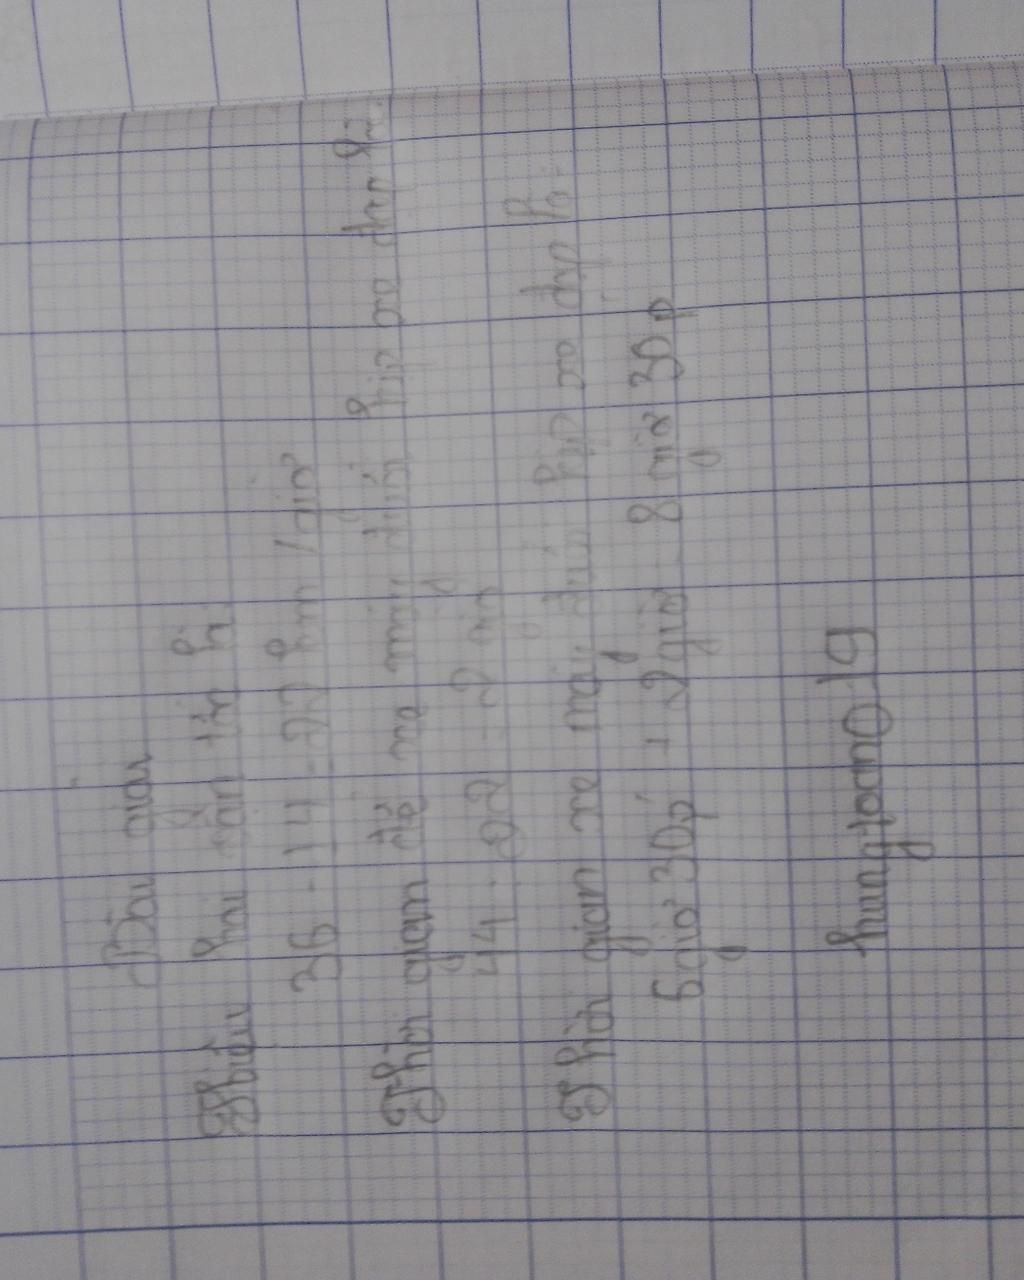 Bài giải
Hiệu hai vận tốc là:
36 - 14 = 22 km / giờ
Thời gian để xe máy đuổi kịp xe đạp là:
44 : 22 = 2 giờ
Thời gian xe máy đuổi kịp xe đạp là:
6 giờ 30p + 2 giờ = 8 giờ 30p